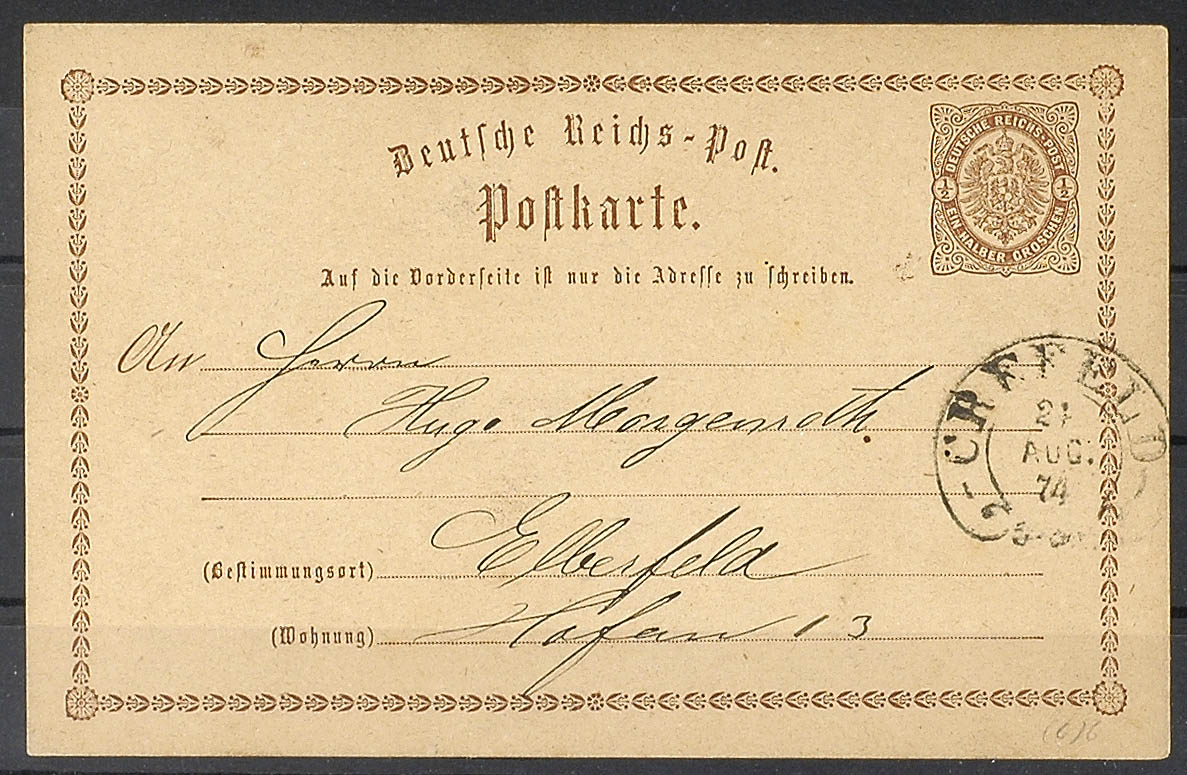 Deutsche Reichs-Post.
Postkarte.
DEUTSCHE REICHS-POST
½ ½
EIN HALBER GROSCHEN
Auf die Vorderseite ist nur die Adresse zu schreiben.
An Herrn
Hugo Morgenroth.
CREFELD
21
AUG.
74
(Bestimmungsort) Elberfeld
(Wohnung) Hofau 13